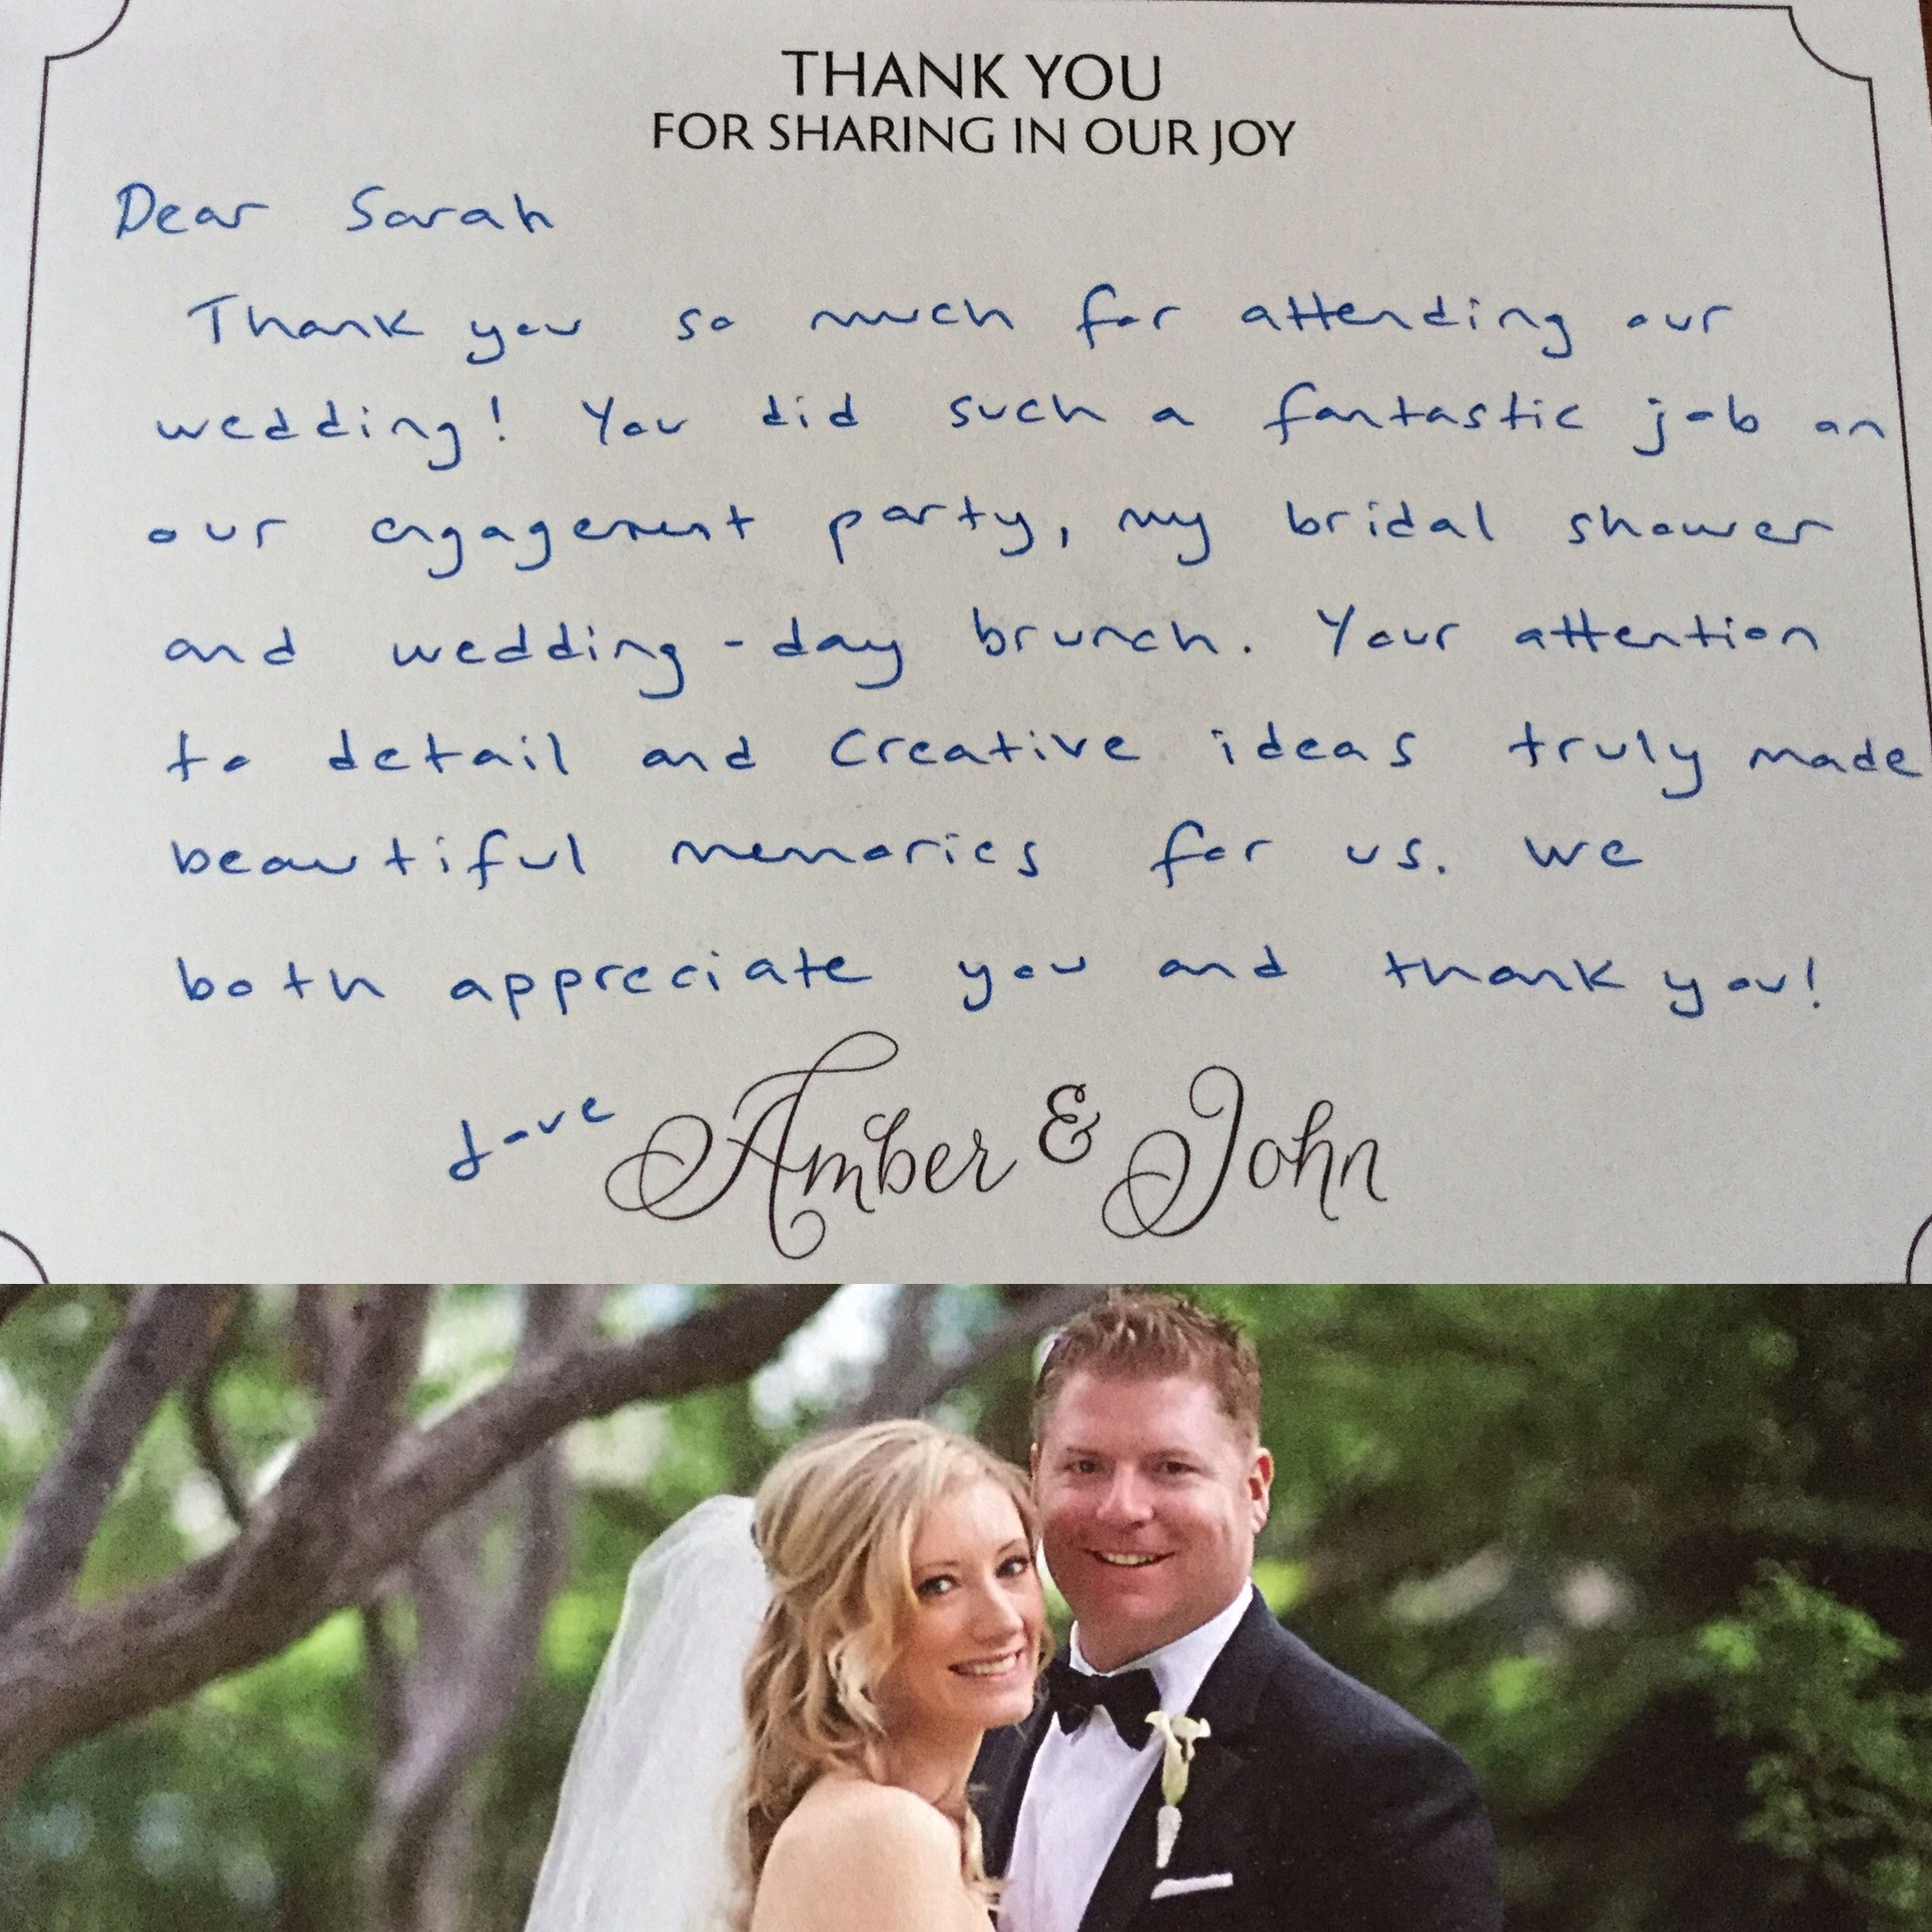 THANK YOU
FOR SHARING IN OUR JOY
Dear Sarah
Thank you so much for attending our
wedding! You did such a fantastic job on
our engagement party, my bridal shower
and wedding-day brunch. Your attention
to detail and creative ideas truly made
beautiful memories for us. We
both appreciate you and thank you!
Love Amber & John